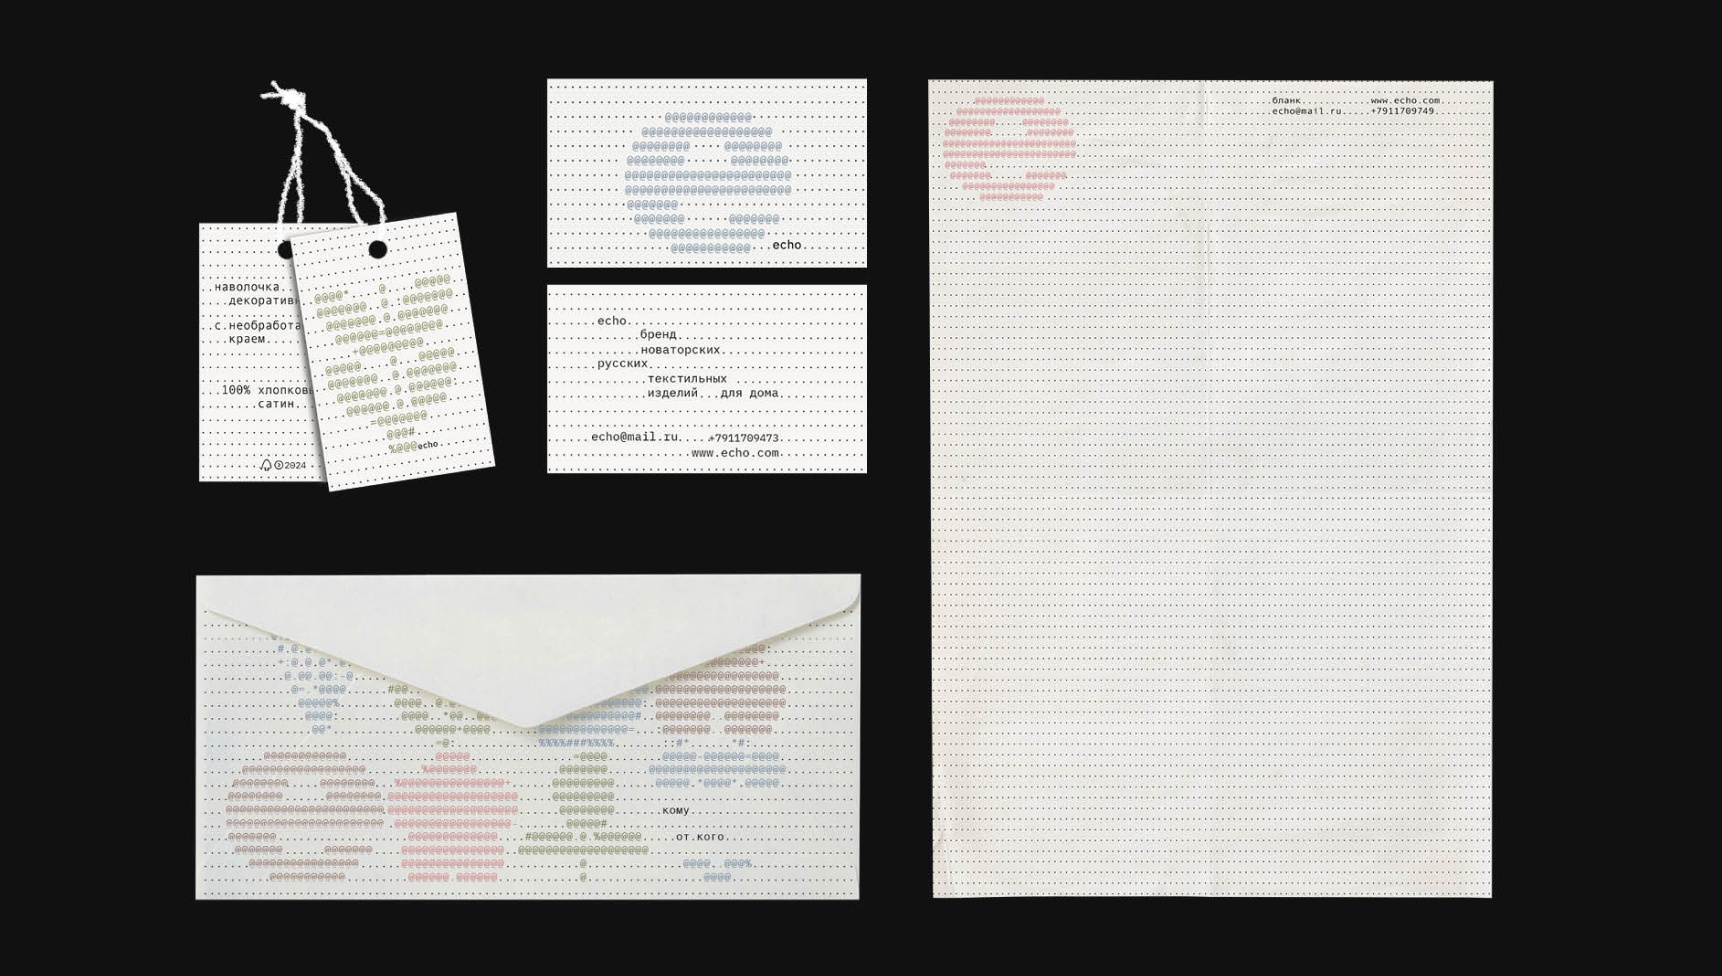 наволочка
декоративн
с.необработа
краем
100% хлопков
сатин
2024
echo
echo
echo
бренд
новаторских
русских
текстильных
изделий...для дома
echo@mail.ru....+7911709473
www.echo.com
бланк
echo@mail.ru
www.echo.com
+7911709749
кому
от.кого